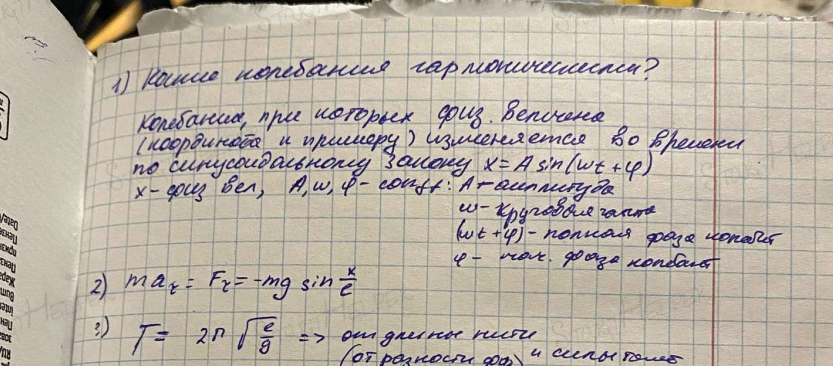 1) Какие колебания гармоническими?
Колебания, при которых физ. величена
(координата к примеру) изменяется во времени
по синусоидальному закону x = A sin(ωt + φ)
x - физ вел, A, ω, φ - const: A - амплитуда
ω - круговая часта
(ωt + φ) - полная фаза колебит
φ - нач. фаза колебаит
2) ma_τ = F_τ = -mg sin x/ℓ
3) T = 2π √ℓ/g => от длины нити
(от разности фаз) и силы тяжест